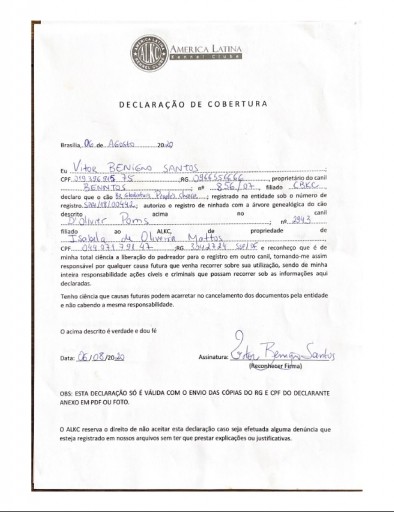 AMERICA LATINA
Kennel Clube
ALKC
DECLARAÇÃO DE COBERTURA
Brasília, 06 de AGOSTO 2020
Eu VITOR BENIGNO SANTOS
CPF RG , proprietário do canil
BENNTOS nº 856/07, filiado CBKC,
declaro que o cão , registrado na entidade sob o número de
registro , autorizo o registro de ninhada com a árvore genealógica do cão
descrito acima no canil
D'olivier Poms nº 2943
filiado ao ALKC, de propriedade de
Isabela de Oliveira Mattos
CPF RG e reconheço que é de
minha total ciência a liberação do padreador para o registro em outro canil, tornando-me assim
responsável por qualquer causa futura que venha recorrer sobre sua utilização, sendo de minha
inteira responsabilidade ações cíveis e criminais que possam recorrer sob as informações aqui
declaradas.
Tenho ciência que causas futuras podem acarretar no cancelamento dos documentos pela entidade
e não cabendo a mesma responsabilidade.
O acima descrito é verdade e dou fé
Data: 06/08/2020 Assinatura: Vitor Benigno Santos
(Reconhecer Firma)
OBS: ESTA DECLARAÇÃO SÓ É VÁLIDA COM O ENVIO DAS CÓPIAS DO RG E CPF DO DECLARANTE
ANEXO EM PDF OU FOTO.
O ALKC reserva o direito de não aceitar esta declaração caso seja efetuada alguma denúncia que
esteja registrado em nossos arquivos sem ter que prestar explicações ou justificativas.